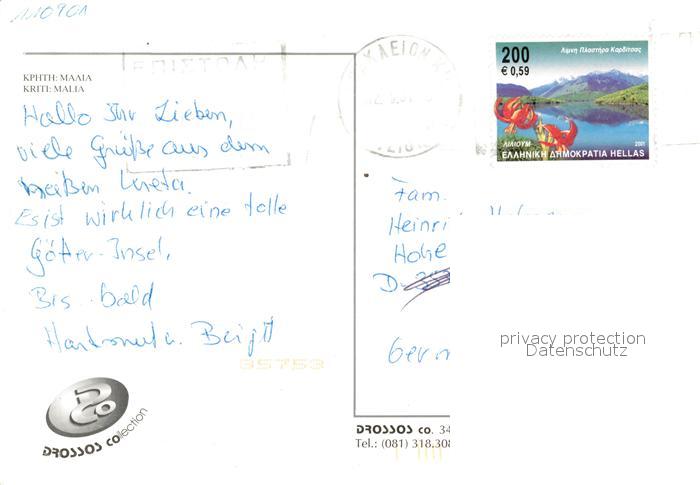 110901
ΚΡΗΤΗ: ΜΑΛΙΑ
KRITI: MALIA
ΕΠΙΣΤΟΛ
Hallo Ihr Lieben,
viele Grüße aus dem
heißen Kreta.
Es ist wirklich eine tolle
Götter-Insel,
Bis bald
Hartmut u. Birgit
85753
DROSSOS collection
200
€ 0,59
Λίμνη Πλαστήρα Καρδίτσας
ΛΙΛΙΟΥΜ
2001
ΕΛΛΗΝΙΚΗ ΔΗΜΟΚΡΑΤΙΑ HELLAS
Fam.
Heinri
Hohe
D-
Germ
privacy protection
Datenschutz
DROSSOS co. 34
Tel.: (081) 318.308